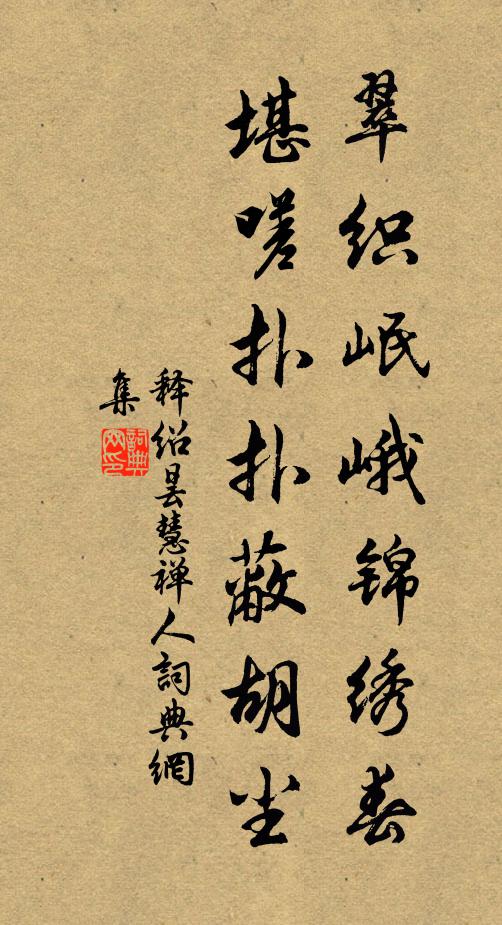 翠织岷峨锦绣春
堪嗟扑扑蔽胡尘
释绍昙慧禅人詞典網
集
詞典
网印